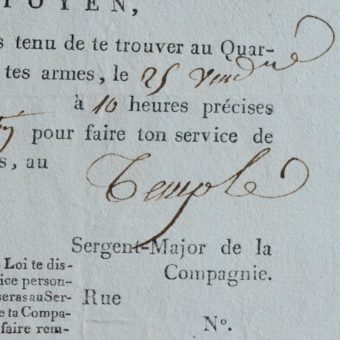 OYEN,
s tenu de te trouver au Quar-
tes armes, le 25 Vend re
à 10 heures précises
pour faire ton service de
s, au Temple
Sergent-Major de la
Compagnie.
Loi te dis-
ice person-
seras au Ser- Rue
e ta Compa-
faire rem- N°.